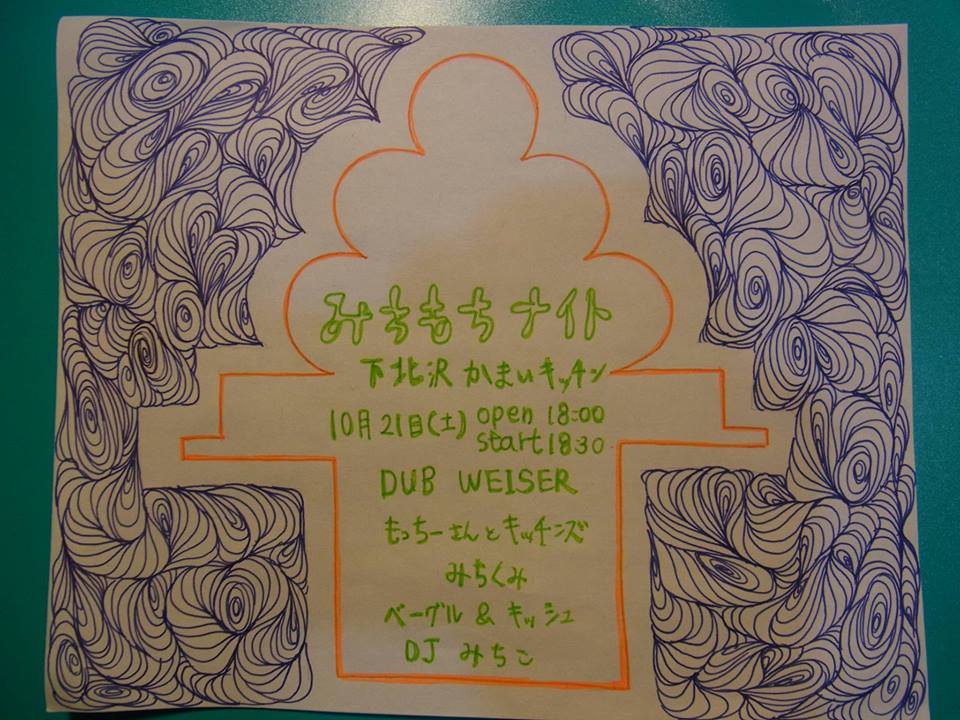 みちもちナイト
下北沢 かまいキッチン
10月21日(土) open 18:00
start 18 30
DUB WEISER
もっちーさんとキッチンズ
みちくみ
ベーグル & キッシュ
DJ みちこ